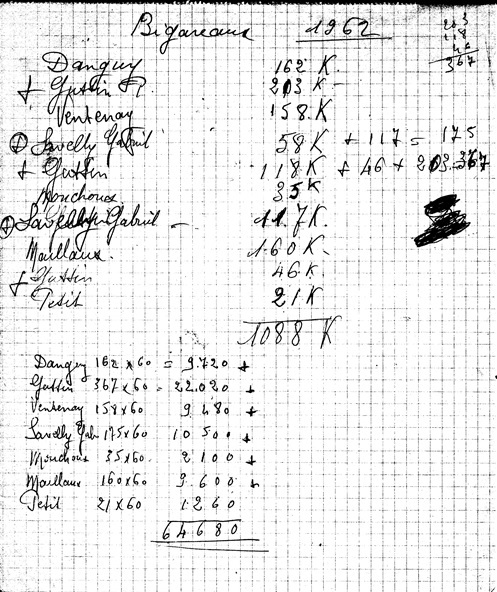 Bigareaux 1962
203
118
46
367
Danguy 162 K.
+ Guttin P. 203 K -
Ventenay 158 K
+ Savelly Gabriel 58 K + 117 = 175
+ Guttin 118 K + 46 + 203 = 367
Mouchoux 35 K
+ Savelly Gabriel - 117 K
Maillaux. 160 K.
+ Guttin 46 K.
Petit 21 K
1088 K
Danguy 162 x 60 = 9.720 +
Guttin 367 x 60 = 22.020 +
Ventenay 158 x 60 9 480 +
Savelly Gab 175 x 60 10 500 +
Mouchoux 35 x 60 2 100 +
Maillaux 160 x 60 9.600 +
Petit 21 x 60 1.260
64680